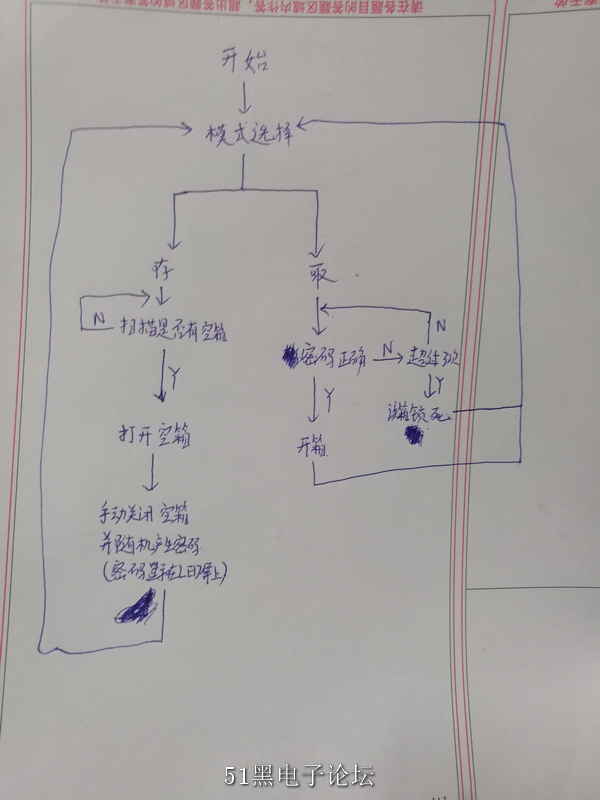 请在各题目的答题区域内作答，超出答题区域的答案无效
开始
模式选择
存
取
N
扫描是否有空箱
密码正确
N
超过3次
N
Y
Y
Y
打开空箱
开箱
该箱锁死
手动关闭空箱
并随机产生密码
(密码显示在LED屏上)
51黑电子论坛